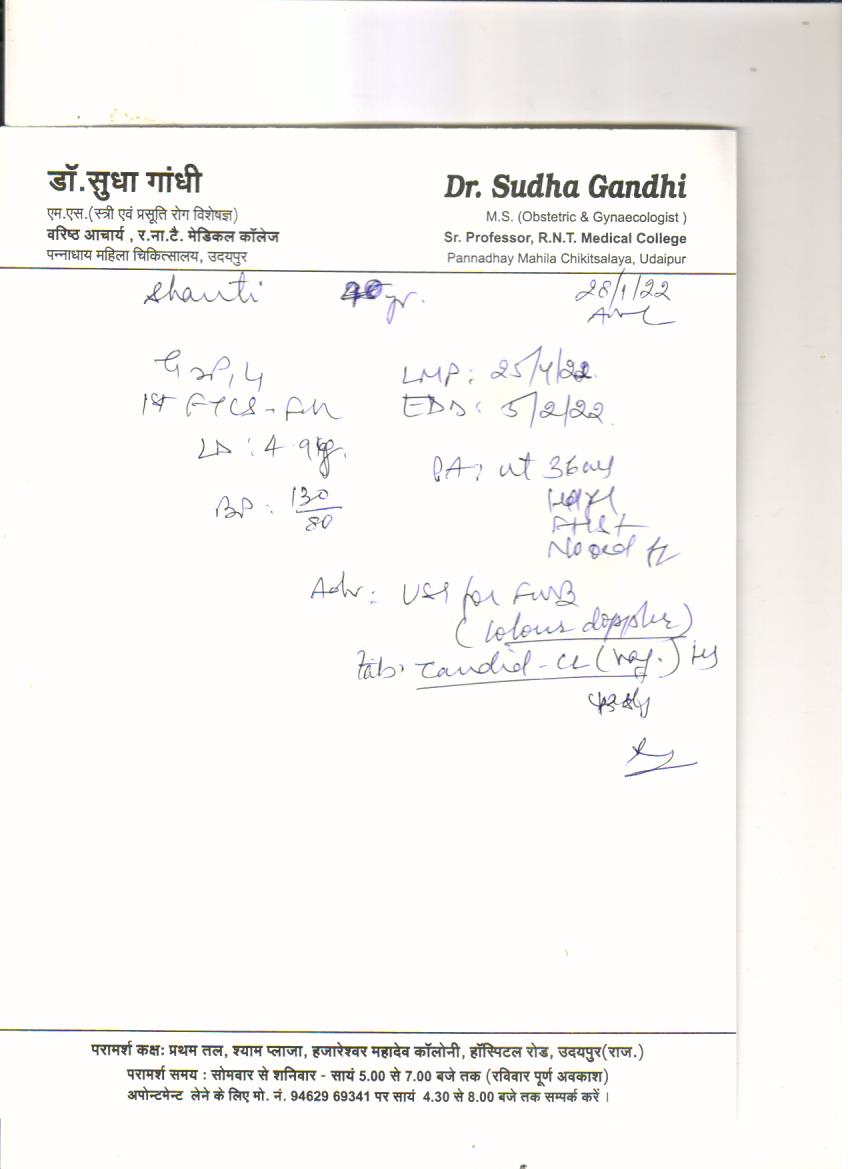 डॉ.सुधा गांधी
एम.एस.(स्त्री एवं प्रसूति रोग विशेषज्ञ)
वरिष्ठ आचार्य , र.ना.टै. मेडिकल कॉलेज
पन्नाधाय महिला चिकित्सालय, उदयपुर
Dr. Sudha Gandhi
M.S. (Obstetric & Gynaecologist )
Sr. Professor, R.N.T. Medical College
Pannadhay Mahila Chikitsalaya, Udaipur
Shanti 40 yr. 28/1/22
LMP: 25/4/22
1st FTCS - EDD: 5/2/22
LD: 4.9kg.
PA: ut 36
BP: 130/80
FHS +
Adv: USG for FWB
(colour doppler)
Tab. Candid-CL (vag.)
परामर्श कक्षः प्रथम तल, श्याम प्लाजा, हजारेश्वर महादेव कॉलोनी, हॉस्पिटल रोड, उदयपुर(राज.)
परामर्श समय : सोमवार से शनिवार - सायं 5.00 से 7.00 बजे तक (रविवार पूर्ण अवकाश)
अपोन्टमेन्ट लेने के लिए मो. नं. 94629 69341 पर सायं 4.30 से 8.00 बजे तक सम्पर्क करें ।